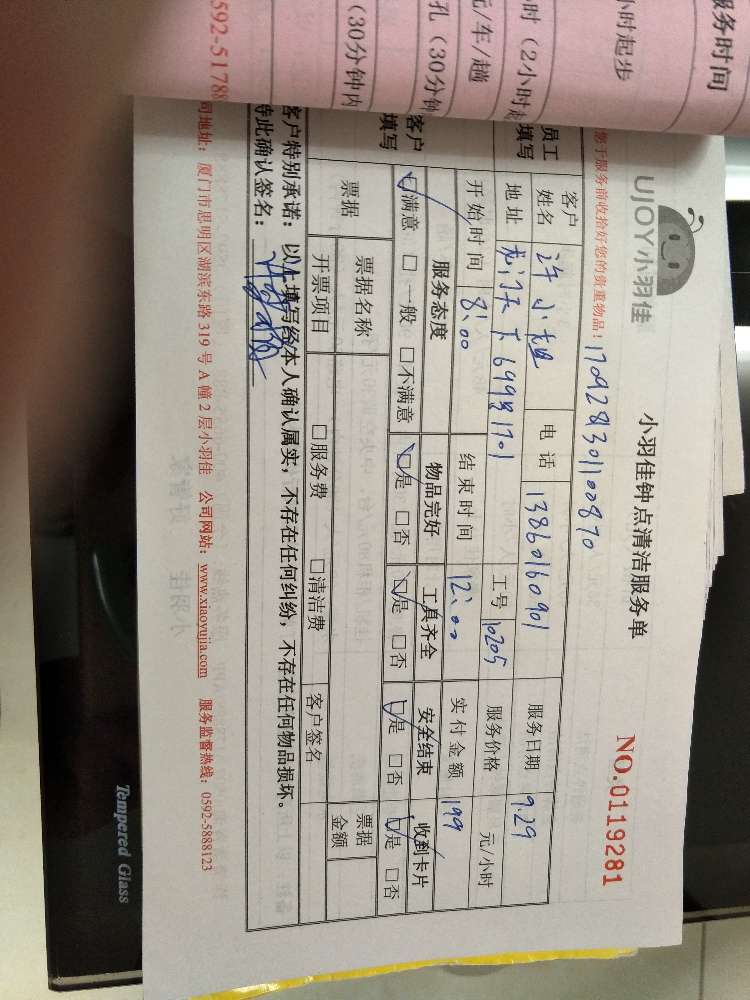 服务时间
小时起步
小时（2小时起
元/车/趟
孔（30分钟
（30分钟内
0592-51788
UJOY小羽佳
小羽佳钟点清洁服务单
NO.0119281
您于服务前收拾好您的贵重物品！
170928301100870
员工填写
客户姓名 许小姐 电话 13860160901 服务日期 9.29
地址 1701 工号 10205 服务价格 元/小时
开始时间 8:00 结束时间 12:00 实付金额 199
客户填写
服务态度 物品完好 工具齐全 安全结束 收到卡片
☑满意 □一般 □不满意 ☑是 □否 ☑是 □否 ☑是 □否 ☑是 □否
票据 票据名称 □服务费 □清洁费 客户签名 票据金额
开票项目
客户特别承诺：以上填写经本人确认属实，不存在任何纠纷，不存在任何物品损坏。
特此确认签名：
司地址：厦门市思明区湖滨东路319号A幢2层小羽佳 公司网站：www.xiaoyujia.com 服务监督热线：0592-5888123
Tempered Glass